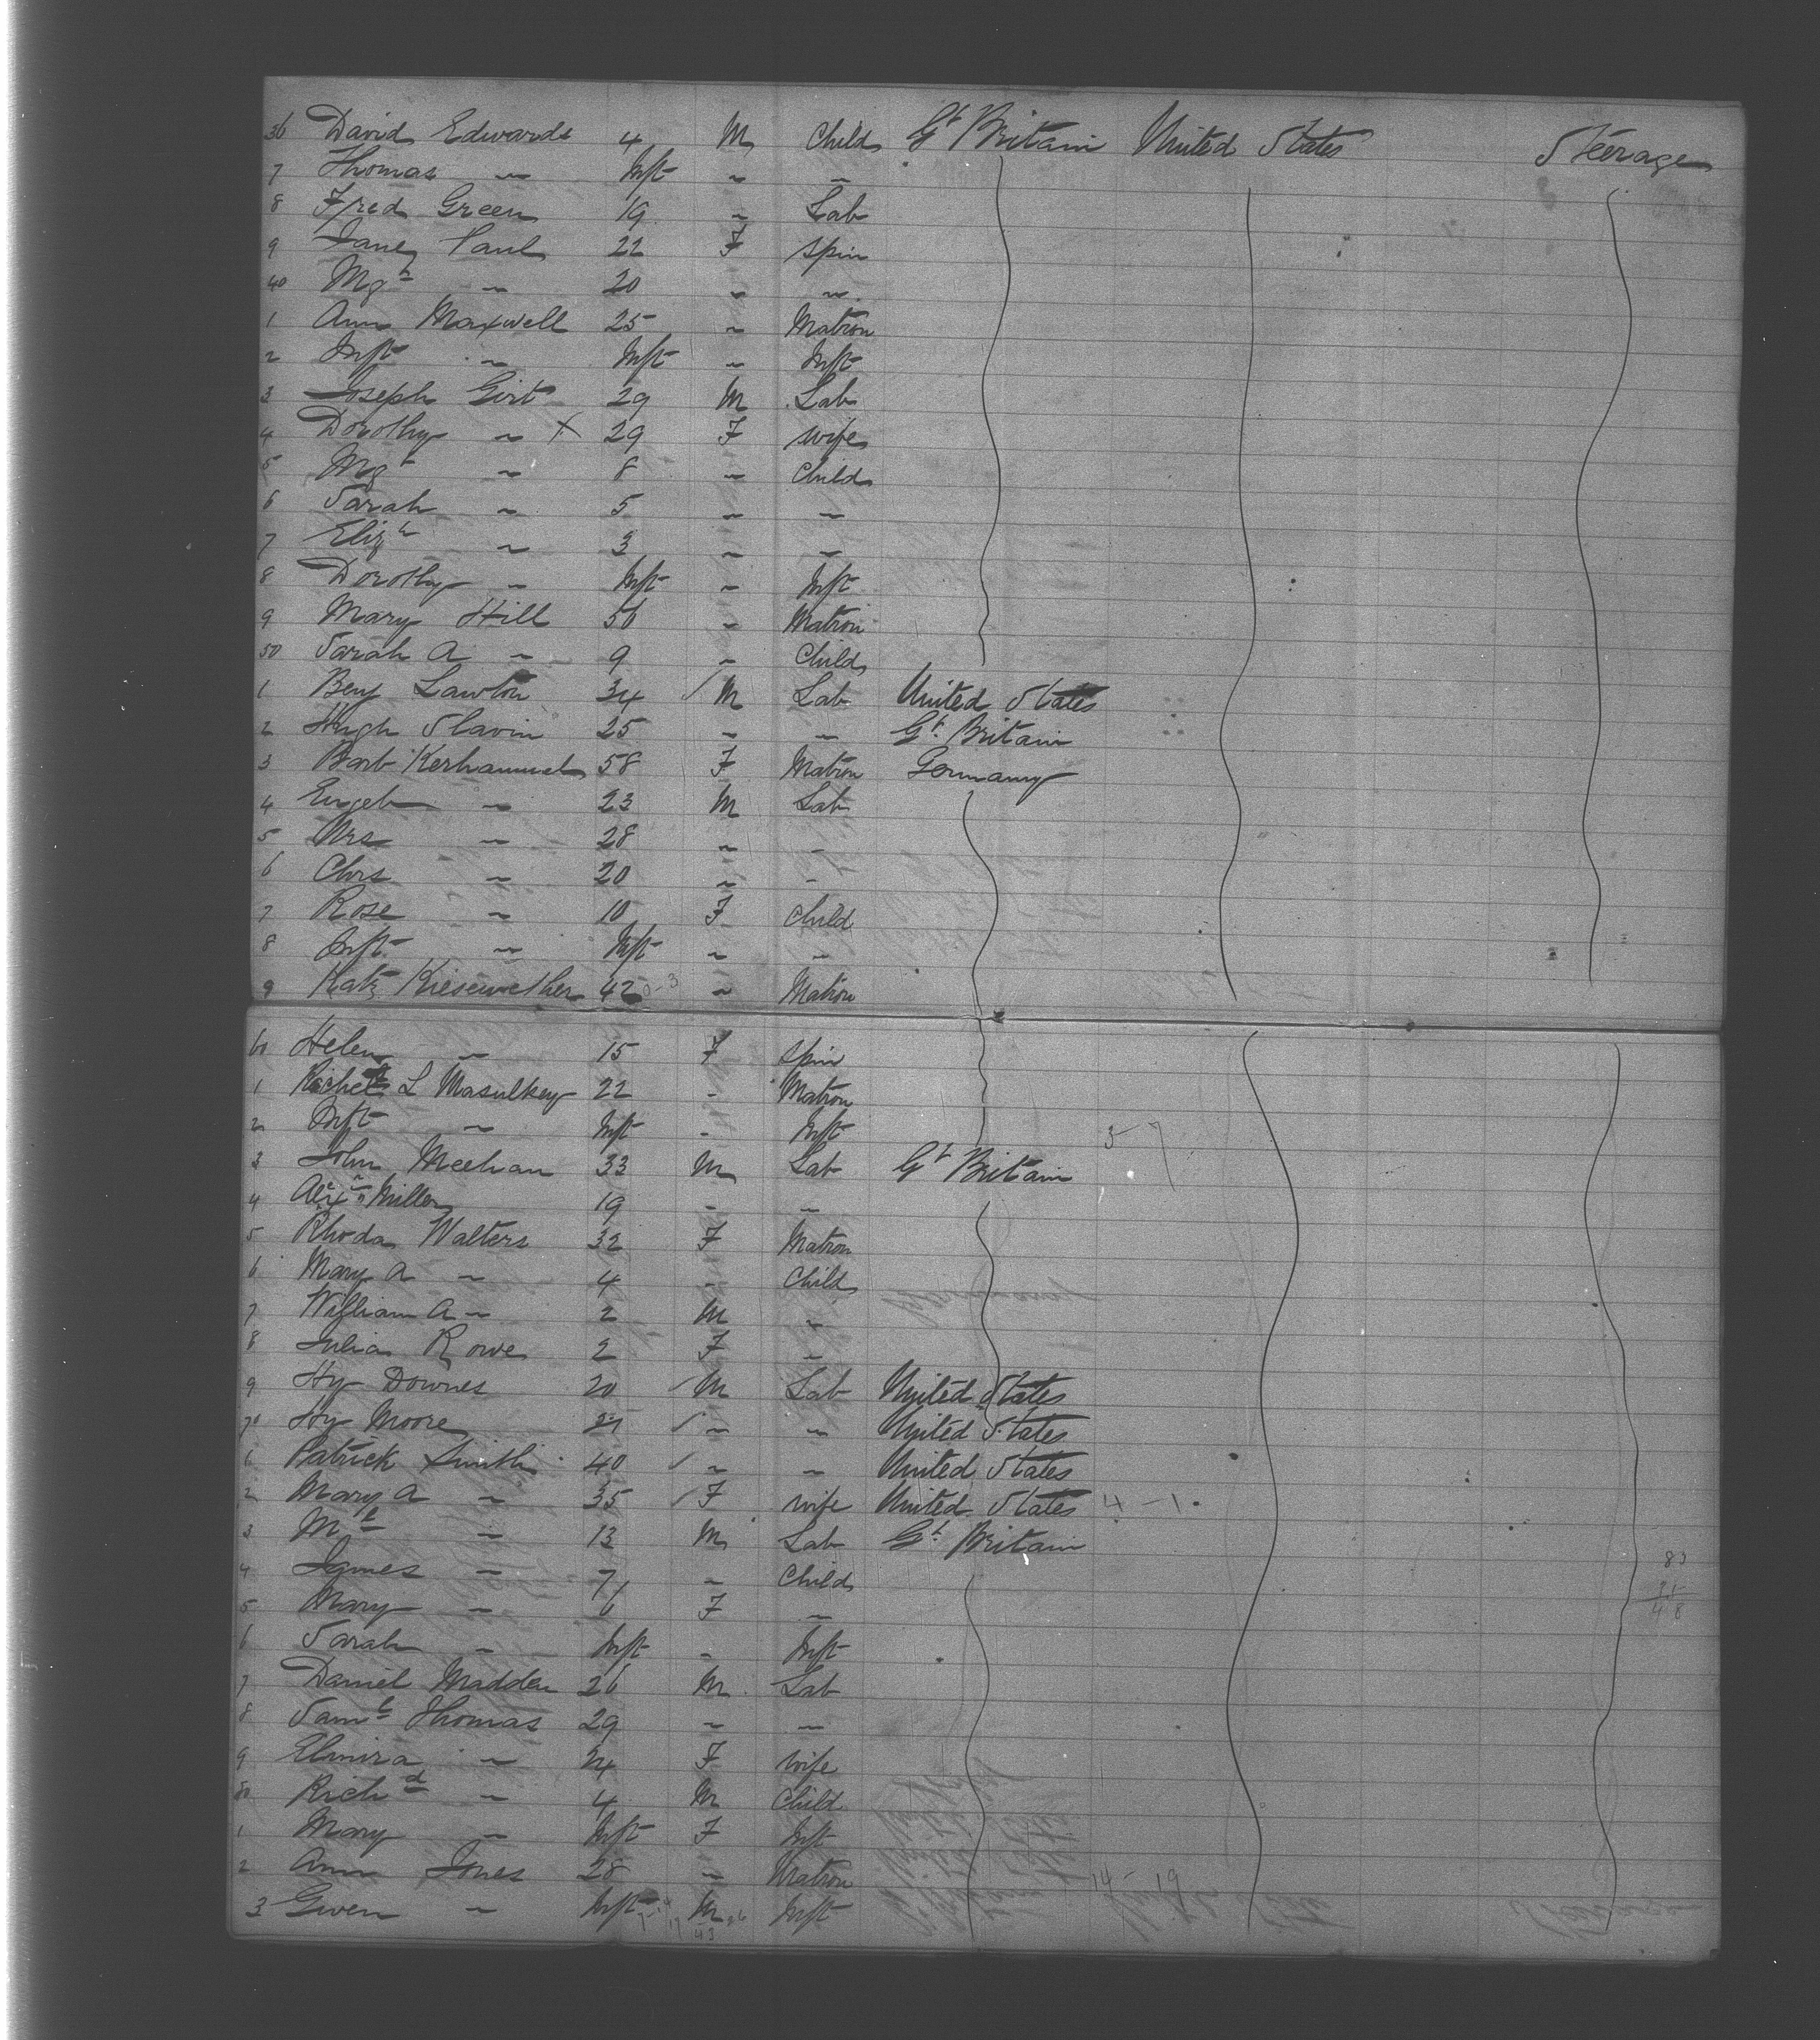 36 David Edwards 4 M Child Gt Britain United States Steerage
7 Thomas " Inft " "
8 Fred Green 19 " Lab
9 Janey Paul 22 F Spin
40 Mgt " 20 " "
1 Ann Maxwell 25 " Matron
2 Inft " Inft " Inft
3 Joseph Girt 29 M Lab
4 Dorothy " X 29 F wife
5 Mgt " 8 " Child
6 Sarah " 5 " "
7 Elizh " 3 " "
8 Dorothy " Inft " Inft
9 Mary Hill 50 " Matron
50 Sarah A " 9 " Child
1 Benj Lawton 34 M Lab United States
2 Hugh Slavin 25 " " Gt Britain
3 Barb Kerhammel 58 F Matron Germany
4 Engel " 23 M Lab
5 " 28 " "
6 Chrs " 20 " "
7 Rose " 10 F Child
8 Inft " Inft " "
9 Kath Kiesewether 42 " Matron
60 Helen " 15 F Spin
1 L Masulkey 22 " Matron
2 Inft " Inft " Inft 3 7
3 John Meehan 33 M Lab Gt Britain
4 Alexr Miller 19 " "
5 Rhoda Walters 32 F Matron
6 Mary A " 4 " Child
7 William A " 2 M "
8 Julia Rowe 2 F "
9 Hy Downes 20 M Lab United States
70 Hy Moore 21 " " United States
Patrick Smith 40 " " United States
2 Mary A " 35 F wife United States 4 - 1
3 " 13 M Lab Gt Britain
4 James " 7 " Child
5 Mary " 6 F "
6 Sarah " Inft " Inft
7 Daniel Madden 26 M Lab
8 Saml Thomas 29 " "
9 Elmira " 24 F wife
80 Richd " 4 M Child
1 Mary " Inft F Inft
2 Ann Jones 28 " Matron 14 - 19
3 Gwen " Inft M Inft